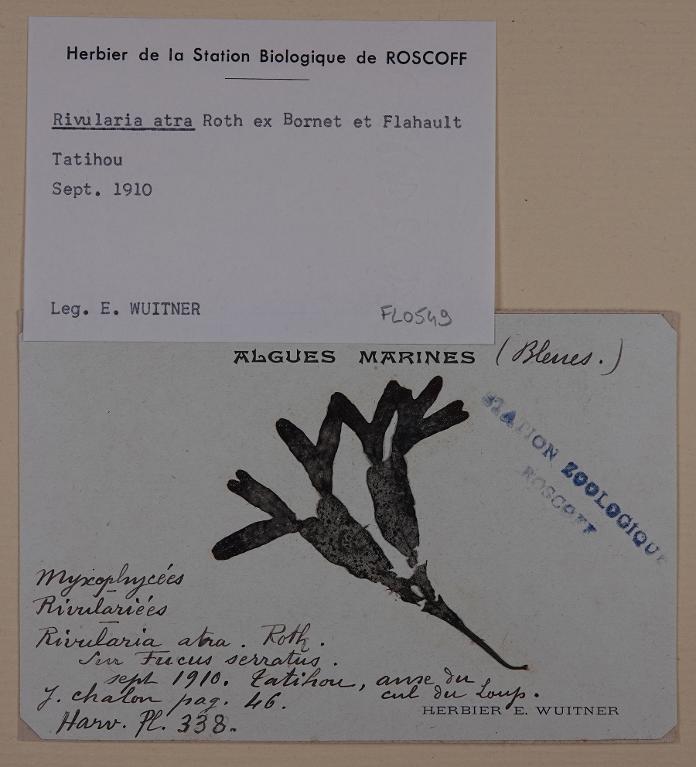 Herbier de la Station Biologique de ROSCOFF
Rivularia atra Roth ex Bornet et Flahault
Tatihou
Sept. 1910
Leg. E. WUITNER
FL0549
ALGUES MARINES (Bleues.)
STATION ZOOLOGIQUE
ROSCOFF
Myxophycées
Rivulariées
Rivularia atra. Roth.
Sur Fucus serratus.
sept 1910. Tatihou, anse du
cul du Loup.
J. chalon pag. 46.
Harv. Pl. 338.
HERBIER E. WUITNER